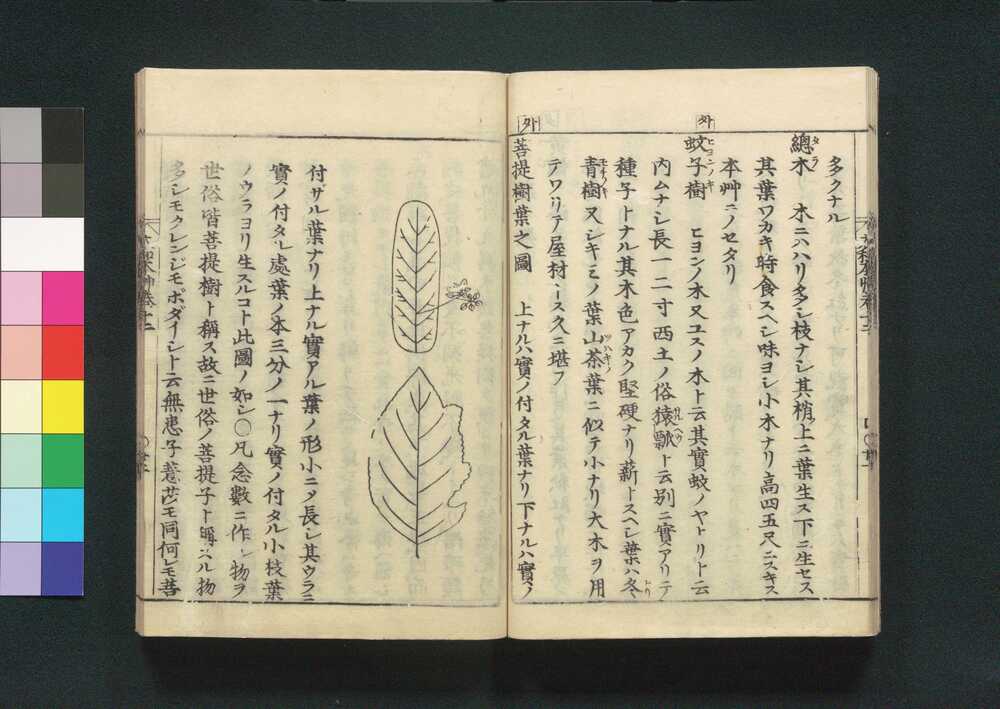 多クナル
外
楤木 木ニハリ多シ枝ナシ其梢上ニ葉生ス下ニ生セス
其葉ワカキ時食スヘシ味ヨシ小木ナリ高四五尺ニスキス
本艸ニノセタリ
蚊子樹 ヒヨンノ木又ユスノ木ト云其實蚊ノヤトリト云
内ムナシ長一二寸西土ノ俗猿瓢ト云別ニ實アリテ
種子トナル其木色アカク堅硬ナリ薪トスヘシ葉ハ冬
青樹又シキミノ葉山茶葉ニ似テ小ナリ大木ヲ用
テワリテ屋材ニス久ニ堪フ
外
菩提樹葉之圖 上ナルハ實ノ付タル葉ナリ下ナルハ實ノ
付ザル葉ナリ上ナル實アル葉ノ形小ニ乄長シ其ウラニ
實ノ付タル處葉ノ本三分ノ一ナリ實ノ付タル小枝葉
ノウラヨリ生スルコト此圖ノ如シ○凡念數ニ作ル物ヲ
世俗皆菩提樹ト稱ス故ニ世俗ノ菩提子ト稱スル物
多シモクレンジモボダイシト云無患子薏苡モ同何レモ菩